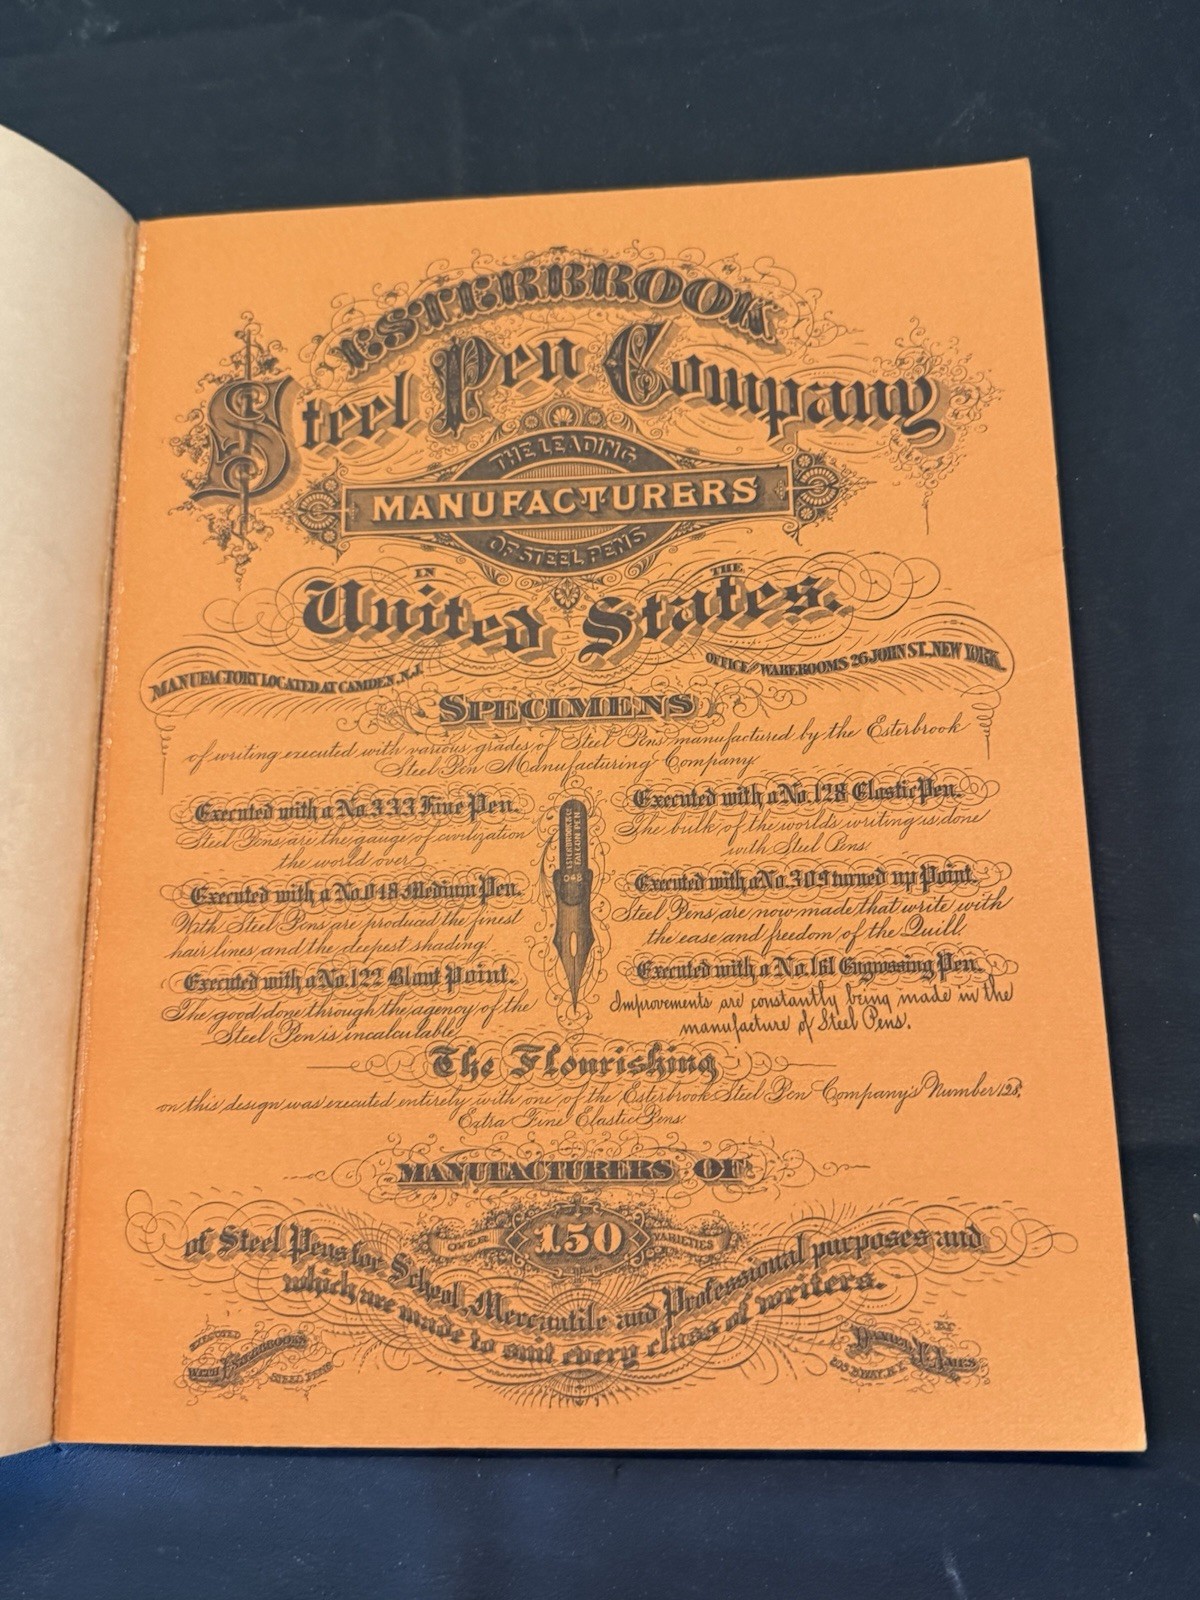 ESTERBROOK
Steel Pen Company
THE LEADING
MANUFACTURERS
OF STEEL PENS
IN THE
United States.
MANUFACTORY LOCATED AT CAMDEN, N.J.
OFFICE AND WAREROOMS 26 JOHN ST., NEW YORK.
SPECIMENS
of writing executed with various grades of Steel Pens manufactured by the Esterbrook
Steel Pen Manufacturing Company
Executed with a No. 333 Fine Pen.
Steel Pens are the gauge of civilization
the world over
Executed with a No. 048 Medium Pen.
With Steel Pens are produced the finest
hair lines and the deepest shading.
Executed with a No. 122 Blunt Point.
The good done through the agency of the
Steel Pen is incalculable
ESTERBROOK & CO
FALCON PEN
048
Executed with a No. 128 Elastic Pen.
The bulk of the world's writing is done
with Steel Pens
Executed with a No. 309 turned up Point.
Steel Pens are now made that write with
the ease and freedom of the Quill.
Executed with a No. 161 Engrossing Pen.
Improvements are constantly being made in the
manufacture of Steel Pens.
The Flourishing
on this design was executed entirely with one of the Esterbrook Steel Pen Company's Number 128,
Extra Fine Elastic Pens
MANUFACTURERS OF
OVER 150 VARIETIES
of Steel Pens for School, Mercantile and Professional purposes and
which are made to suit every class of writers.
EXECUTED
WITH ESTERBROOK
STEEL PENS
BY
DANIEL T. AMES